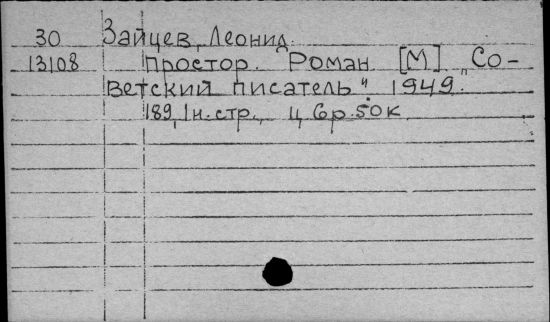 30 Зайцев, Леонид.
13108 Простор. Роман. [М] "Со-
ветский писатель" 1949.
189, 1н. стр., ц. 6р. 50к.